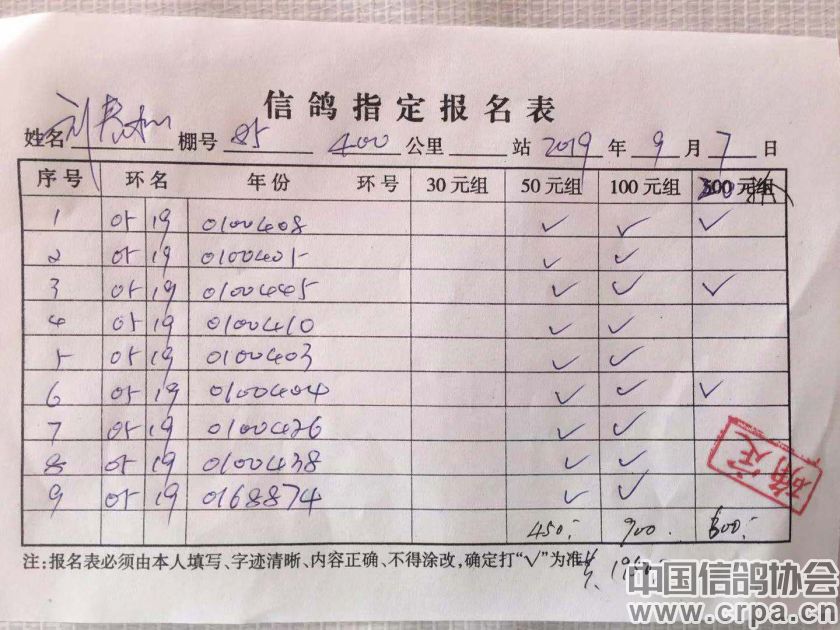 信鸽指定报名表
姓名 棚号 85 400 公里 站 2019 年 9 月 7 日
序号 环名 年份 环号 30元组 50元组 100元组
1 05 19 0100408 ✓ ✓ ✓
2 05 19 0100405 ✓ ✓
3 05 19 0100445 ✓ ✓ ✓
4 05 19 0100410 ✓ ✓
5 05 19 0100403 ✓ ✓
6 05 19 0100404 ✓ ✓ ✓
7 05 19 0100426 ✓ ✓
8 05 19 0100438 ✓ ✓
9 05 19 0168874 ✓ ✓
确定
450 900 600
注:报名表必须由本人填写、字迹清晰、内容正确、不得涂改,确定打“√”为准
1950
中国信鸽协会
www.crpa.cn